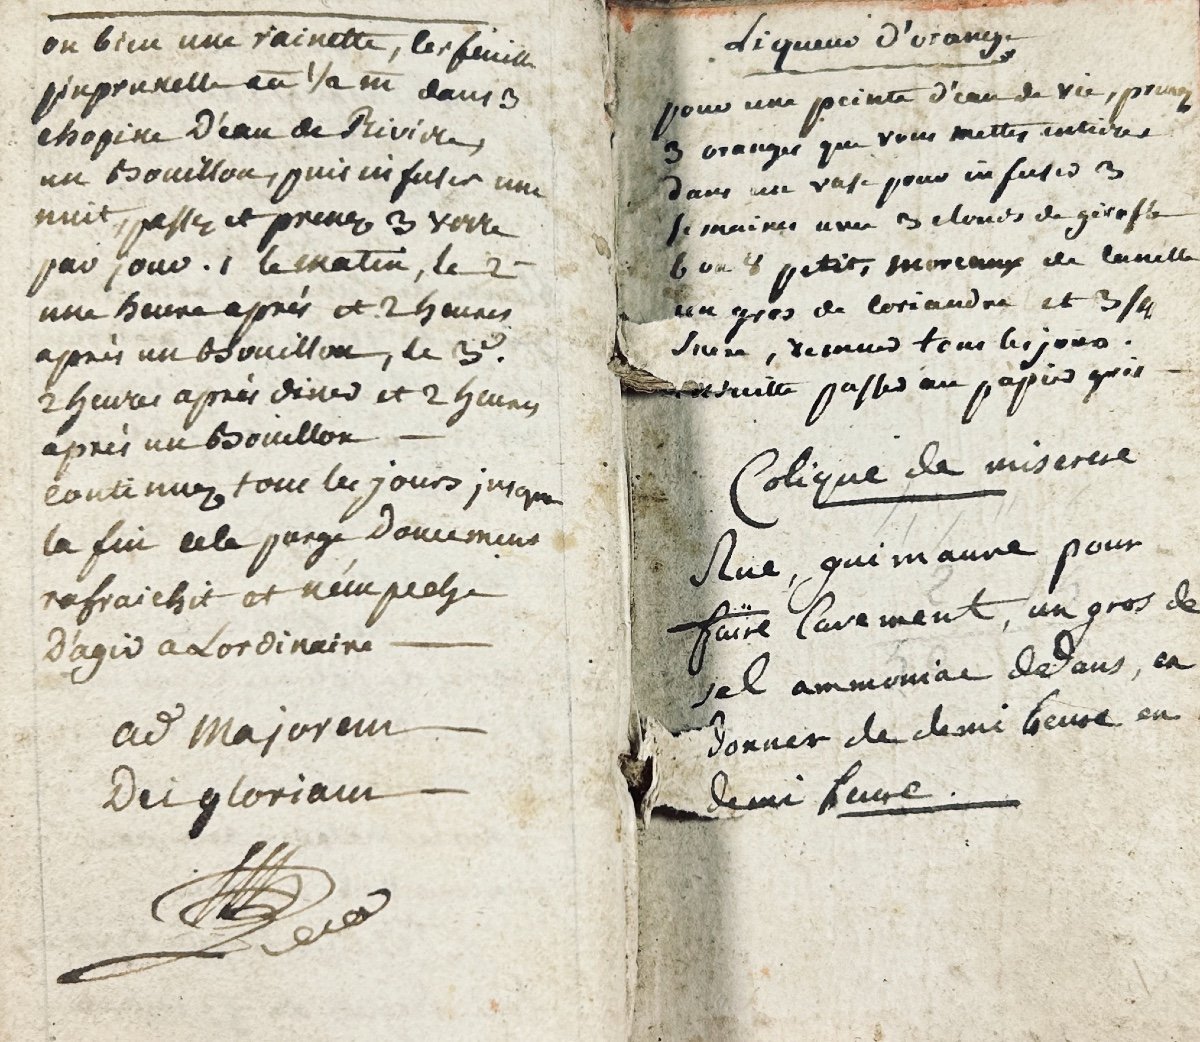 ou bien une rainette, les feuille
pinprenelle añ 1/2 m dans 3
chopine D'eau de Riviere,
un Bouillon, puis infuser une
nuit, passez et prenez 3 verre
par jour . 1 le matin, le 2
une heure aprés et 2 heures
aprés un Bouillon, le 3e.
2 heures aprés diner et 2 heures
aprés un Bouillon —
continuez tous les jours jusqua
la fin cela purge Doucement
rafraichit et n'émpeche
D'agir a Lordinaire —
ad Majorem —
Dei gloriam —
Liqueur d'orange
pour une peinte d'eau de vie, prenez
3 oranges que vous mettes entieres
dans un vase pour infuser 3
semaines avec 3 clouds de girofle
6 ou 8 petits morceaux de canelle
un gros de coriandre et 3/4
sucre, remuer tous les jours .
ensuitte passer au papier gris —
Colique de miserere
Rue, guimauve pour
faire lavement, un gros de
sel ammoniac dedans, en
donner de demi heure en
demi heure .